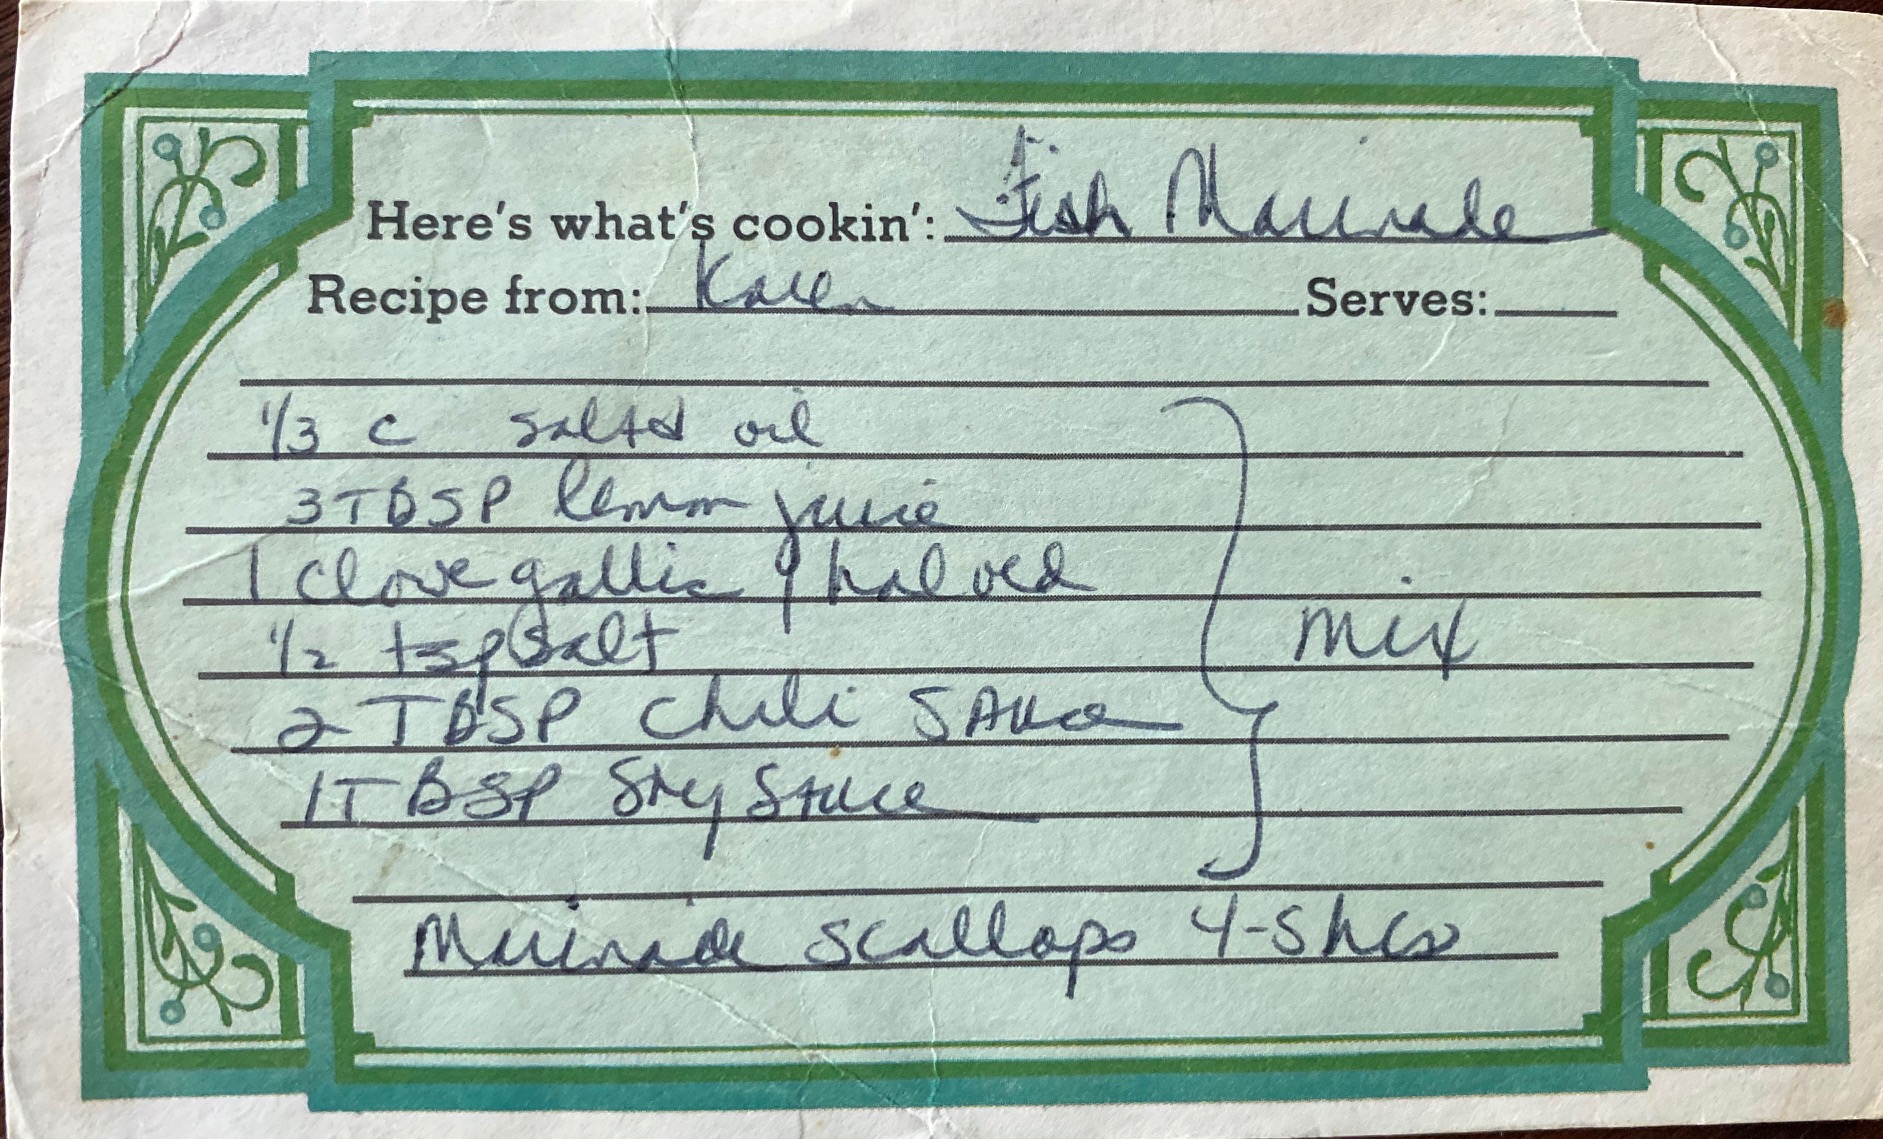 Here's what's cookin': Fish Marinade
Recipe from: Karen Serves:
1/3 c salted oil
3 TBSP lemon juice
1 clove garlic halved
1/2 tsp salt
2 TBSP chili SAuce
1 TBSP Soy Sauce
mix
Marinade scallops 4-5 hrs